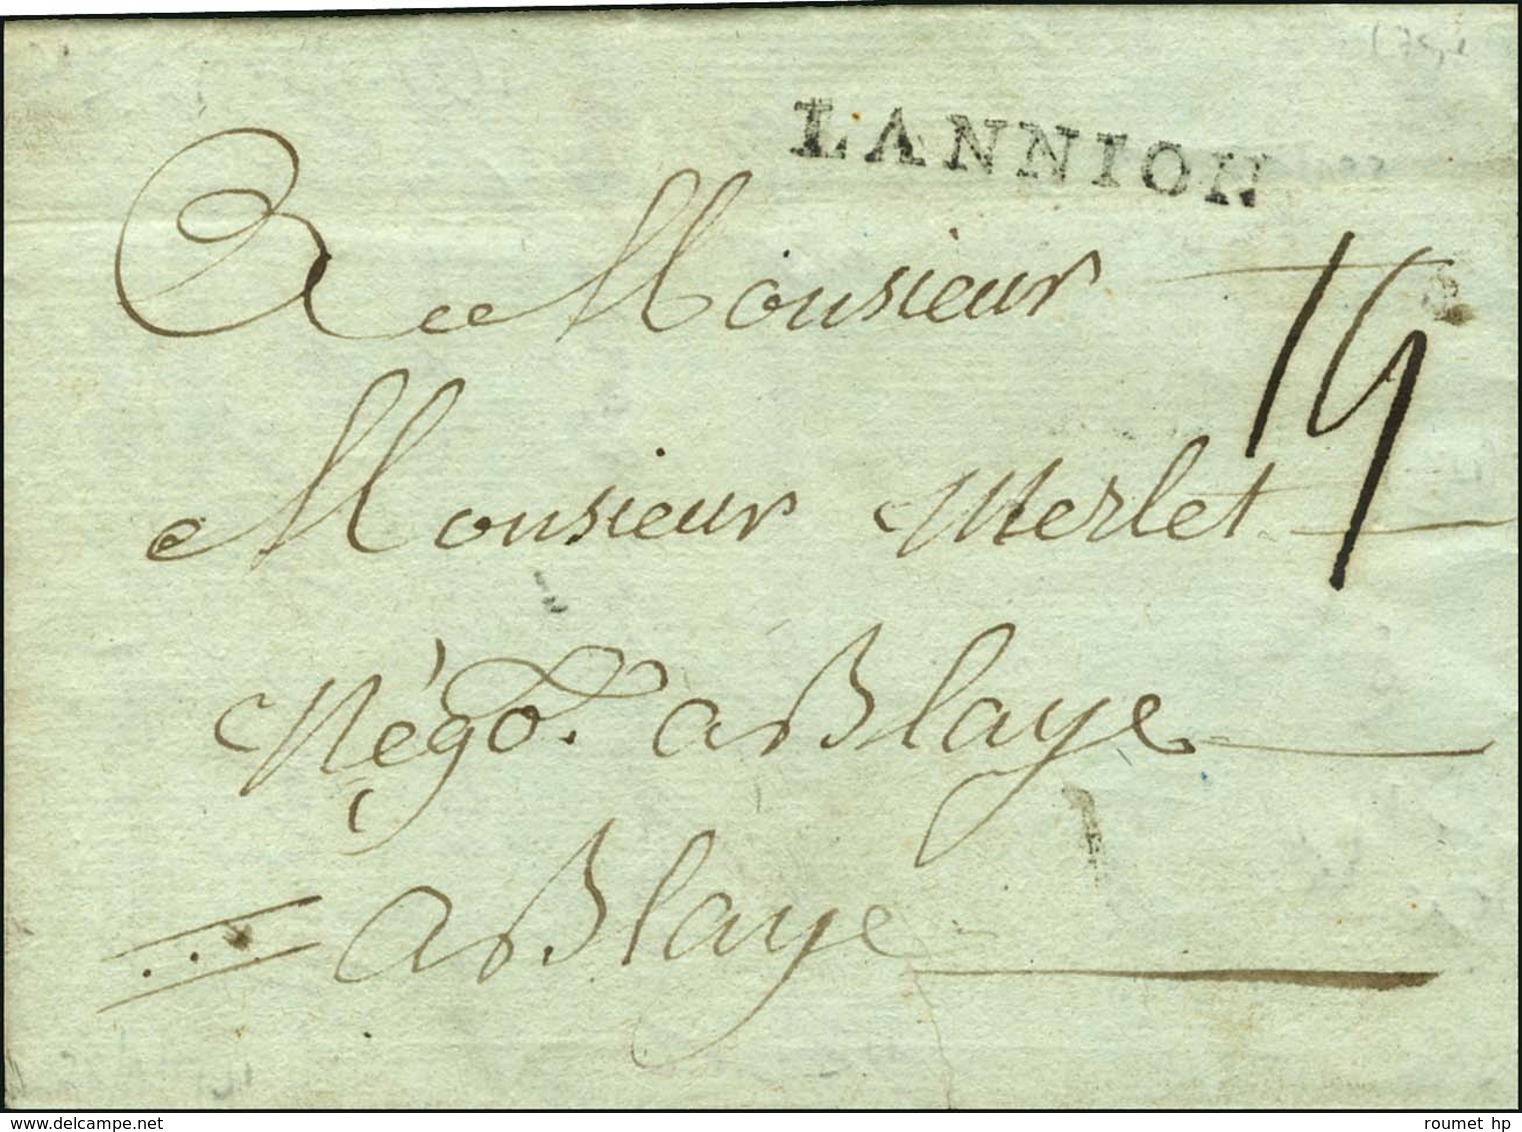 LANNION
A Monsieur
19
Monsieur Merlet
Négo.t a Blaye
a Blaye
delcampe.net
roumet hp